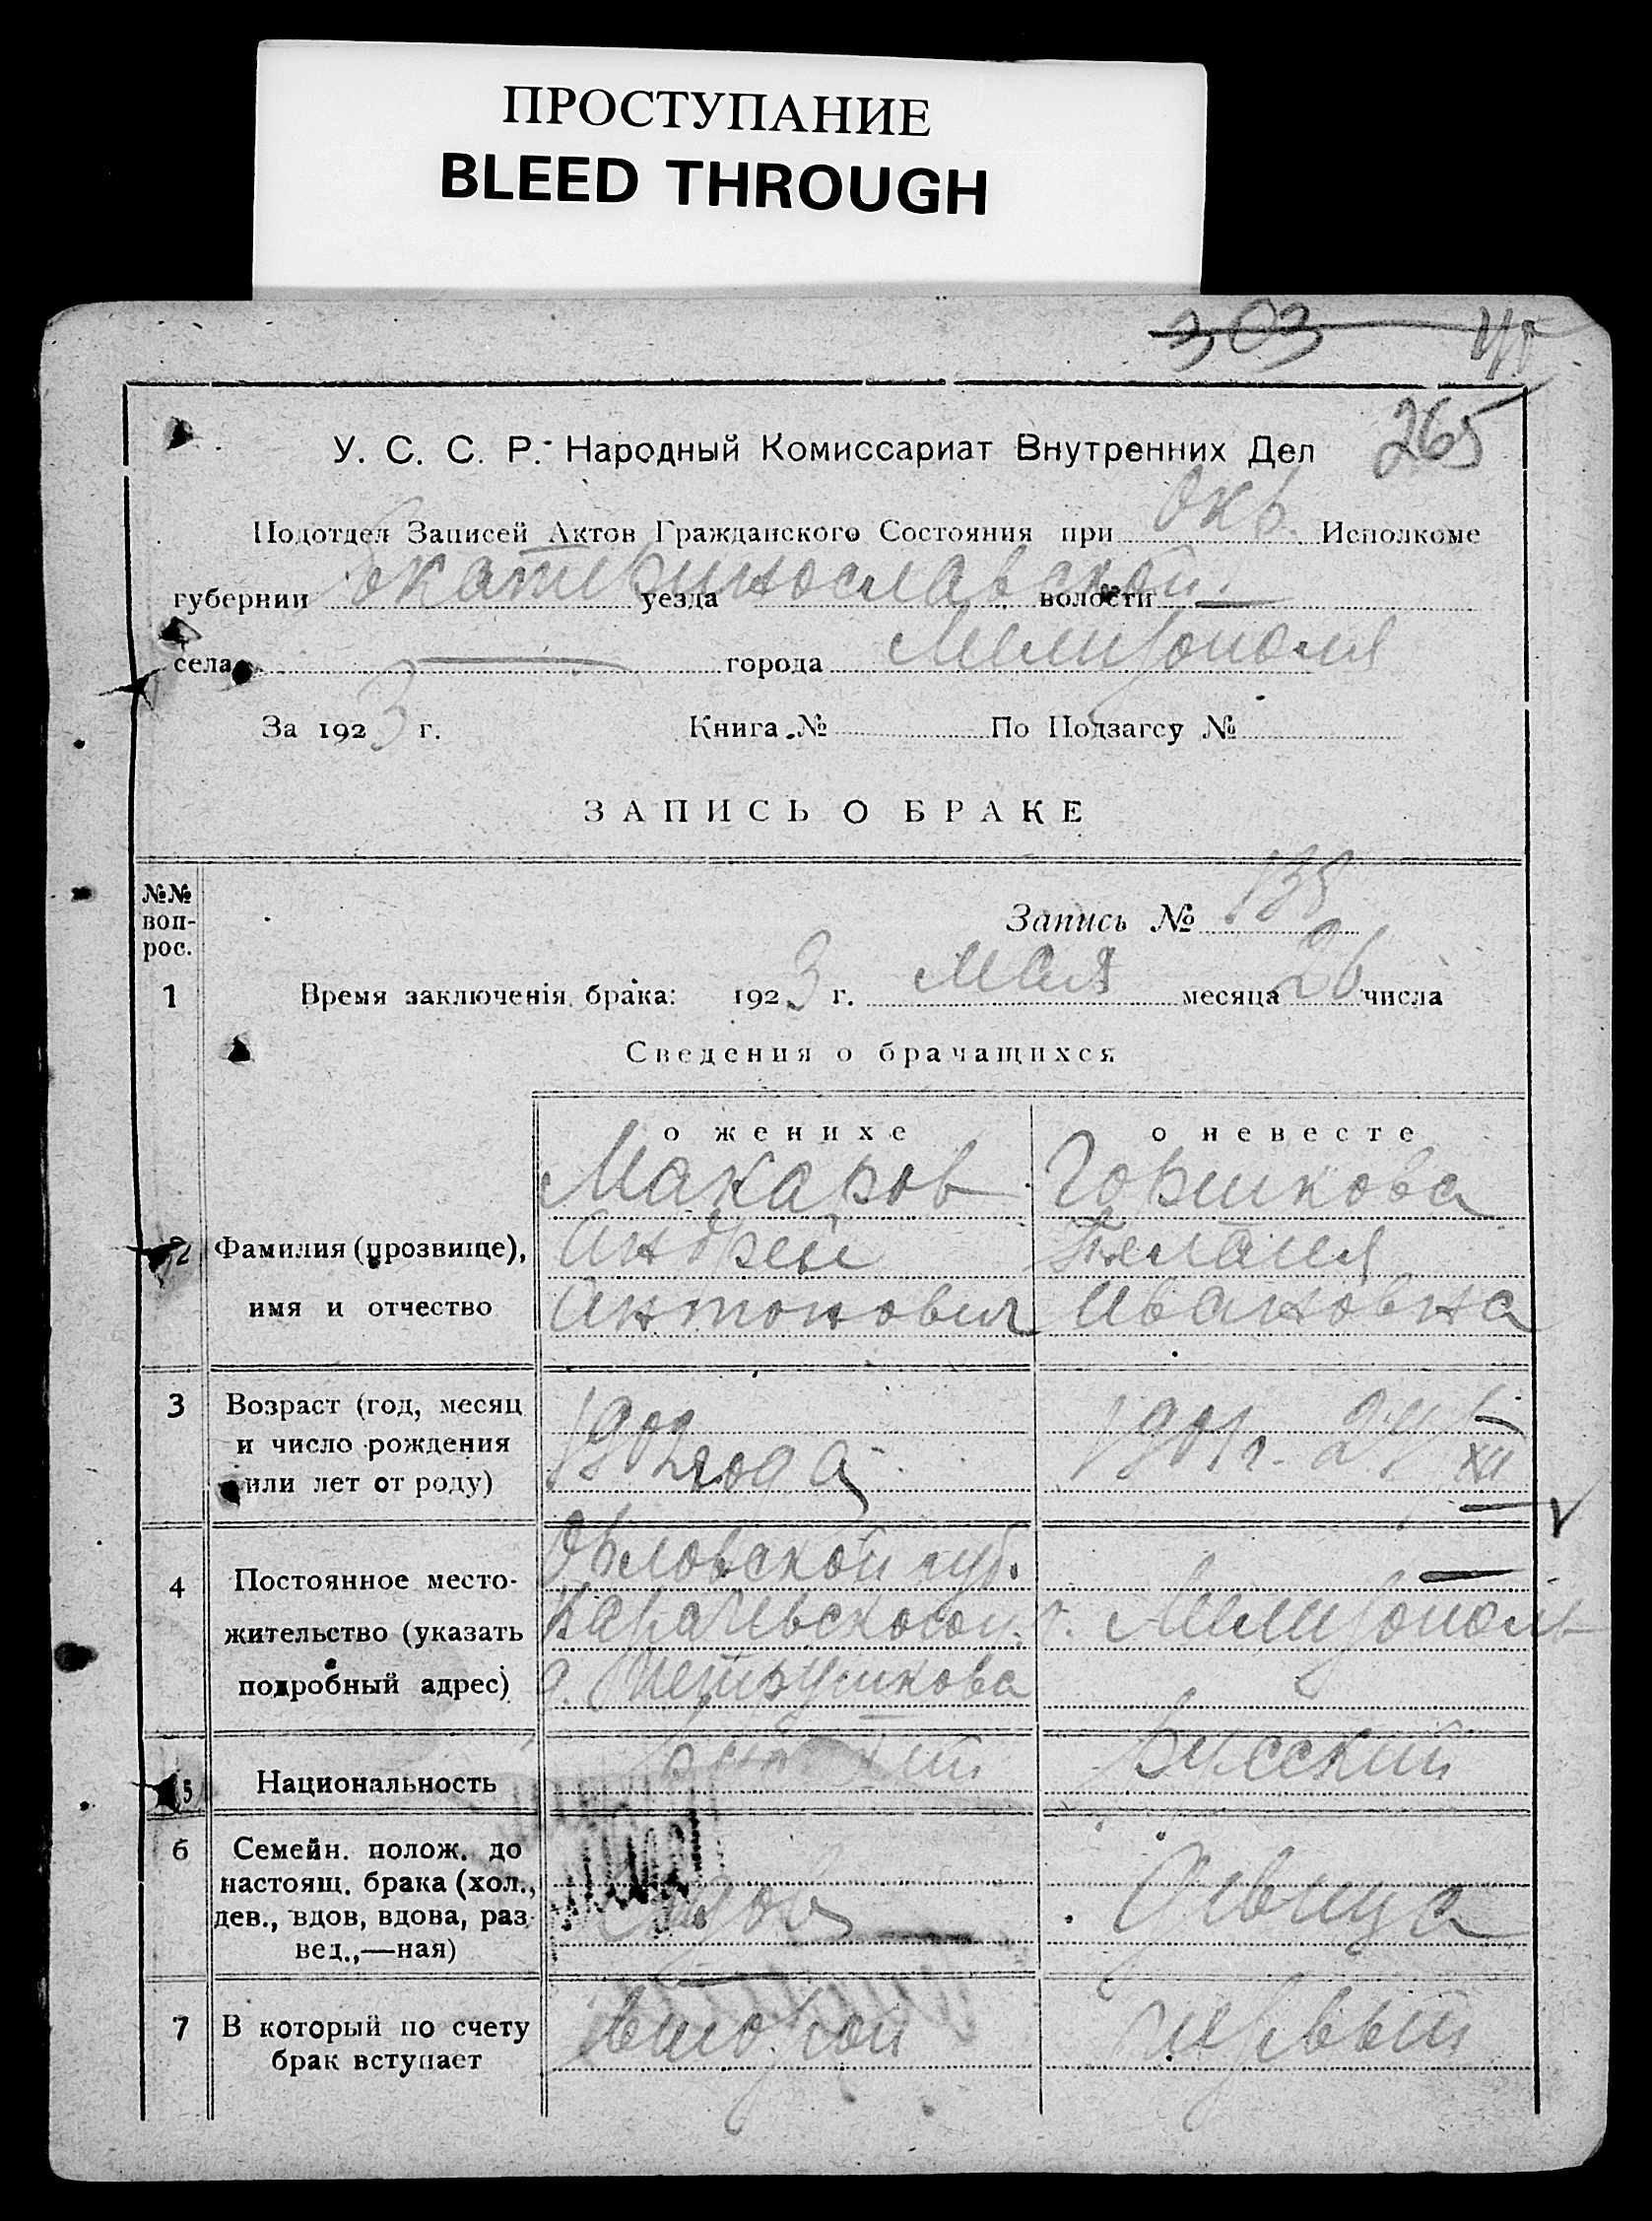 ПРОСТУПАНИЕ
BLEED THROUGH
303
265
У. С. С. Р. Народный Комиссариат Внутренних Дел
Подотдел Записей Актов Гражданского Состояния при Окр. Исполкоме
губернии Екатеринославской уезда волости —
села — города Мелитополя
За 1923 г. Книга № По Подзагсу №
ЗАПИСЬ О БРАКЕ
№№ воп-рос.
Запись № 135
1 Время заключенія брака: 1923 г. мая месяца 26 числа
Сведения о брачащихся
о женихе о невесте
Макаров Горшкова
2 Фамилия (прозвище), Андрей Пелагия
имя и отчество Антонович Ивановна
3 Возраст (год, месяц
и число рождения 1902 года 1901 г. 24/XII
или лет от роду)
Орловской губ. —
4 Постоянное место- Карачевского у. г. Мелитополь
жительство (указать д. Петрушкова
подробный адрес)
5 Национальность Русский Русский
6 Семейн. полож. до
настоящ. брака (хол.,
дев., вдов, вдова, раз- вдов девица
вед.,—ная)
7 В который по счету второй первый
брак вступает